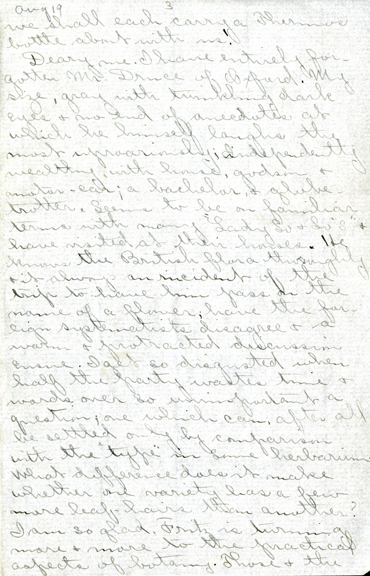 Aug 19
3
we shall each carry a Thermos
bottle about with us!
Deary me. I have entirely for-
gotten Mr. Druce of Oxford. My
size, gray with twinkling dark
eyes & no end of anecdotes at
which he himself laughs the
most uproariously; independently
wealthy, with house, godson &
motor-car; a bachelor & globe
trotter. Seems to be on familiar
terms with many "Lady So & So's" &
have visited at their houses. He
knows the British flora thoroughly
& it always an incident of the
trip to have him pass on the
name of a flower, have the for-
eign systematists disagree & a
warm & protracted discussion
ensue. I get so disgusted when
half the party wastes time &
words over so unimportant a
question; one which can, after all
be settled only by comparison
with the "type" in some herbarium.
What difference does it make
whether one variety has a few
more leaf-hairs than another?
I am so glad Fritz is turning
more & more to the practical
aspects of botany. Those & the